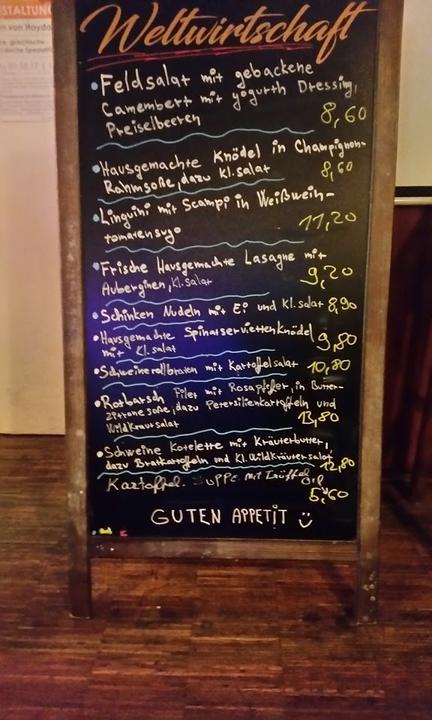 STALTUNG
Weltwirtschaft
• Feldsalat mit gebackene
Camembert mit yogurth Dressing,
Preiselbeeren 8,60
• Hausgemachte Knödel in Champignon-
Rahmsoße, dazu kl. salat 8,60
• Linguini mit Scampi in Weißwein-
tomatensugo 11,20
• Frische Hausgemachte Lasagne mit
Auberginen, kl. salat 9,20
• Schinken Nudeln mit Ei und kl. salat 8,90
• Hausgemachte Spinatserviettenknödel
mit kl. salat 9,80
• Schweinerollbraten mit Kartoffelsalat 10,80
• Rotbarsch Filet mit Rosapfeffer, in Butter-
zitronensoße, dazu Petersilienkartoffeln und
Wildkrautsalat 13,80
• Schweine Kotelette mit Kräuterbutter,
dazu Bratkartoffeln und kl. Wildkräutersalat 12,80
Kartoffel. Suppe mit Trüffel Öl
5,60
GUTEN APPETIT